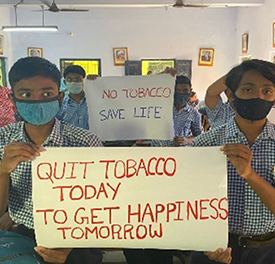 NO TOBACCO
SAVE LIFE
QUIT TOBACCO
TODAY
TO GET HAPPINESS
TOMORROW